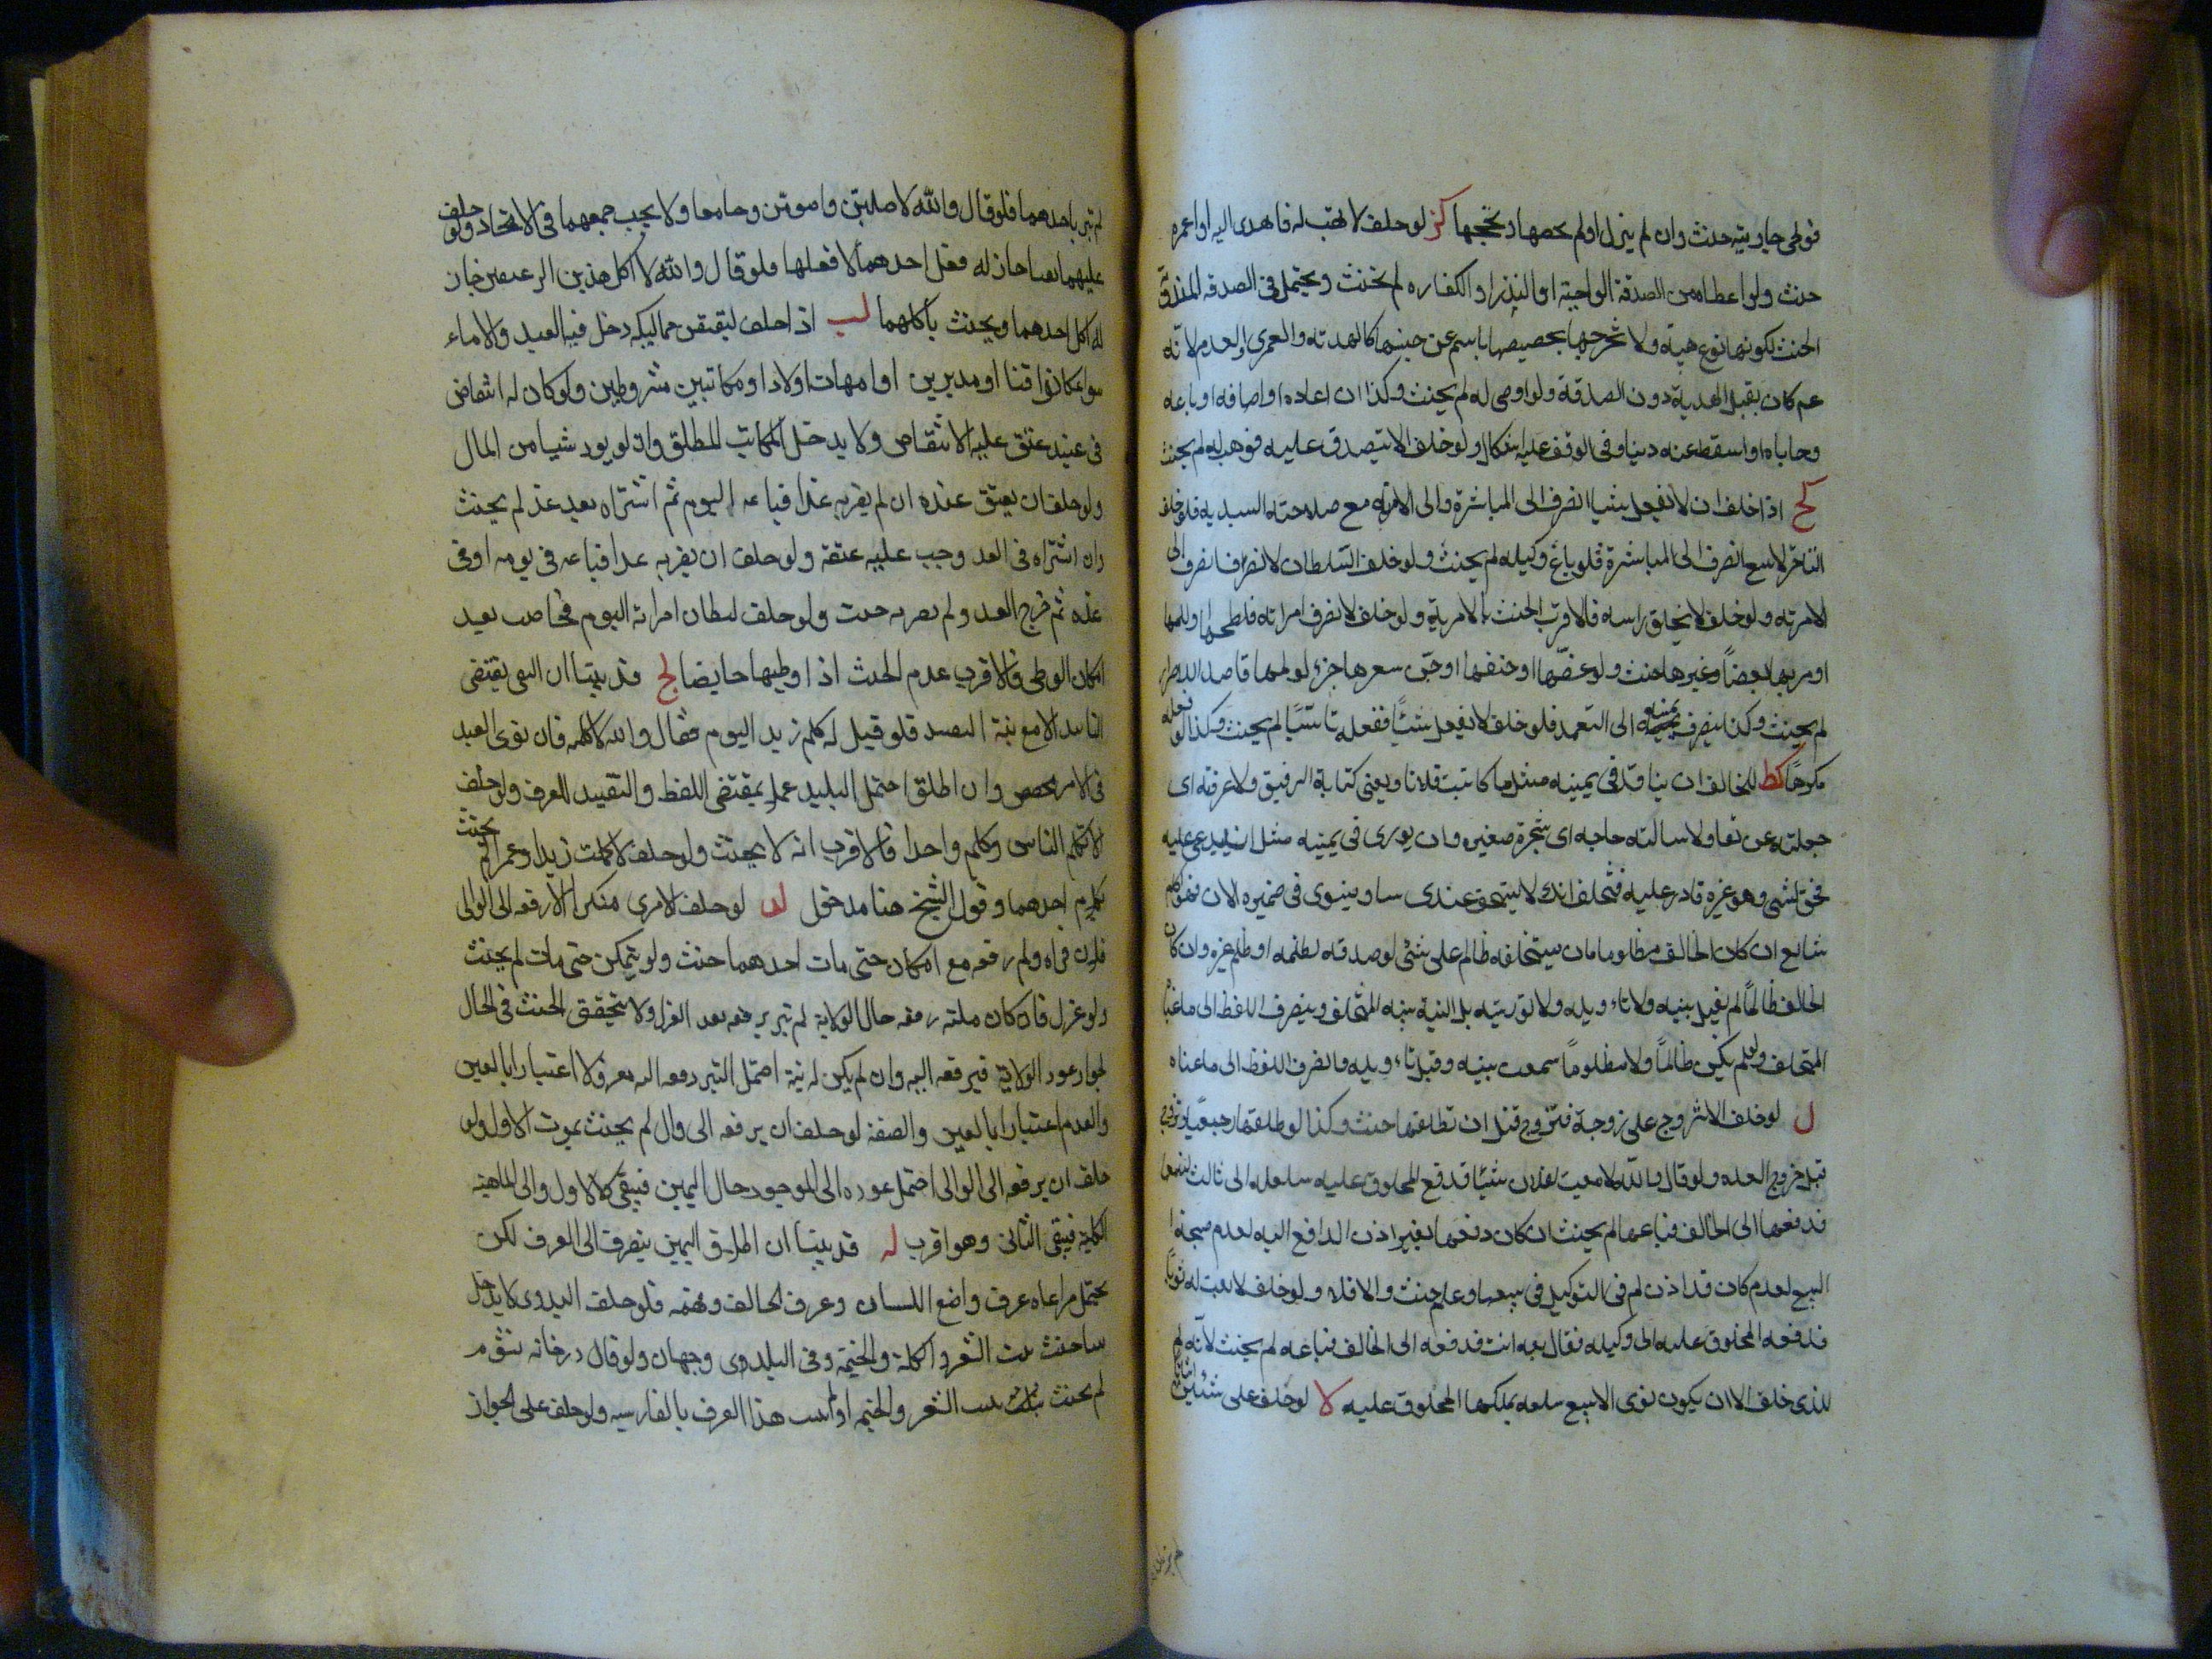 فوطئ جاريته حنث وان لم ينزل اولم يحصها ويحجبها كز لو حلف لا يهب له فاهدى اليه او اعمره
حنث ولو اعطاه من الصدقة الواجبة او النذر او الكفاره لم يحنث ويحتمل فى الصدقه المندوبة
الحنث لكونها نوع هبة ولا يخرجها تخصيصها باسم عن جنسها كالهديه والعمرى والعدم لانه
عم كان يقبل الهدية دون الصدقة ولو اوصى له لم يحنث وكذا ان اعاده او اضافه او باعه
وحاباه او اسقط عنه دينا وفى الوقف عليه اشكال ولو حلف الا يتصدق عليه فوهب له لم يحنث
كح اذا حلف ان لا يفعل شيا انصرف الى المباشرة والى الامر به مع صلاحته السيديه فلو حلف
التاجر لا يبيع انصرف الى المباشرة فلو باع وكيله لم يحنث ولو حلف السلطان لا يضرب انصرف الى
الامر به ولو حلف لا يحلق راسه فالاقرب الحنث بالامر به ولو حلف لا يضرب امراته فلطمها ولكمها
او ضربها بعصا وغيرها حنث ولو عضها او خنقها او جز شعرها جزء لو لمها قاصدا للاضرار
لم يحنث وكذا ينصرف يمينه الى التعمد فلو حلف لا يفعل شيئا ففعله ناسيا لم يحنث وكذا لو فعله
مكرها كط للحالف ان يتاول فى يمينه مثل ما كاتبت فلانا ويعنى كتابة الرقيق ولا عرفته اى
جعلته عريفا ولا سالته حاجه اى شجرة صغيره وان يورى فى يمينه مثل ان يدعى عليه
بحق لشى وهو غيره قادر عليه فيحلف انك لا يستحق عندى سا وينوى فى ضميره الان فهو كلم
شايع ان كان الحالف مظلوما مان يستحلفه ظالم على شئ لو صدقه لظلمه او ظلم غيره وان كان
الحالف ظالما لم يفعل بنيه ولا تاويله ولا توريته بل النية نيه المستحلف وينصرف اللفظ الى ما عناه
المستحلف ولو لم يكن ظالما ولا مظلوما سمعت بنيه وقبل تاويله وانصرف اللفظ الى ما عناه
ل لو حلف الا يتزوج على زوجة فتزوج قبل ان تطلقها حنث وكذا لو طلقها رجعيا وتزوج
قبل خروج العده ولو قال والله لا بعت لفلان شيئا فدفع المحلوف عليه سلعه الى ثالث ليبيعها
فدفعها الى الحالف فباعها لم يحنث ان كان دفعها بغير اذن الدافع اليه لعدم صحة
البيع لعدم كان قد اذن لم فى التوكيل فى بيعها وعلم حنث والا فلا ولو حلف لا بعت له ثوبا
فدفعه المحلوف عليه الى وكيله فقال بعه انت فدفعه الى الحالف فباعه لم يحنث لانه لم
للذى حلف الا ان يكون نوى الا يبيع سلعه يملكها المحلوف عليه لا لو حلف على شيئين
لم تبر باحدهما فلو قال والله لا صلين واصومن وحامعا ولا يجب جمعهما فى الاتحاد ولو حلف
عليهما نفيا جاز له فعل احدهما لا فعلها فلو قال والله لا اكل هذين الرغيفين جاز
له اكل احدهما ويحنث باكلهما لب اذا حلف ليعتقن مماليكه دخل فيه العبيد والاماء
سواء كانوا قنا او مدبرين او امهات اولاد او مكاتبين مشروطين ولو كان له اشقاص
فى عبيد عتق عليه الاشقاص ولا يدخل المكاتب المطلق وان لم يود شيا من المال
ولو حلف ان يعتق عنده ان لم يضربه غدا فباعه اليوم ثم اشتراه بعد غد لم يحنث
وان اشتراه فى الغد وجب عليه عتقه ولو حلف ان يضربه غدا فباعه فى يومه او فى
غده ثم خرج الغد ولم يضربه حنث ولو حلف ليطان امراته اليوم فحاضت بعد
امكان الوطى فالاقرب عدم الحنث اذا وطيها حايضا لج قد بينا ان النهى يقتضى
التابيد الا مع نية التقييد فلو قيل له كلم زيد اليوم فقال والله لا كلمه فان نوى العبد
فى الامر تخصص وان اطلق احتمل التابيد عملا بمقتضى اللفظ والتقييد للعرف ولو حلف
لا تكلم الناس وكلم واحدا فالاقرب انه لا يحنث ولو حلف لا كلمت زيدا وعمرا لم يحنث
بكلام احدهما وقول الشيخ هنا مدخول لد لو حلف لا يرى منكرا الا رفعه الى الوالى
فان راه ولم رفعه مع امكان حتى مات احدهما حنث ولو يتمكن حتى مات لم يحنث
ولو عزل فان كان ملته رفعه حال الولاية لم تبر برفعه بعد العزل ولا يتحقق الحنث فى الحال
لجواز عود الولاية فيرفعه اليه وان لم يكن له نية احتمل التبر دفعه اليه بعزل لا اعتبارا بالعين
والعدم اعتبارا بالعين والصفة لو حلف ان يرفعه الى وال لم يحنث بموت الاول ولو
حلف ان يرفعه الى الوالى احتمل عوده الى الموجود حال اليمين فيبقى كالاول والى الماهية
الكلية فيبقى الثانى وهو اقرب له قد بينا ان اطلاق اليمين ينصرف الى العرف لكن
يحتمل مراعاه عرف واضع اللسان وعرف الحالف وفهمه فلو حلف البدوى لا يدخل
بيتا حنث ببيت الشعر واكلة والخيمة وفى البلدوى وجهان ولو قال درخانه نشوم
لم يحنث ببيت الشعر والخيمه اوليس هذا العرف بالفارسيه ولو حلف على الخباز